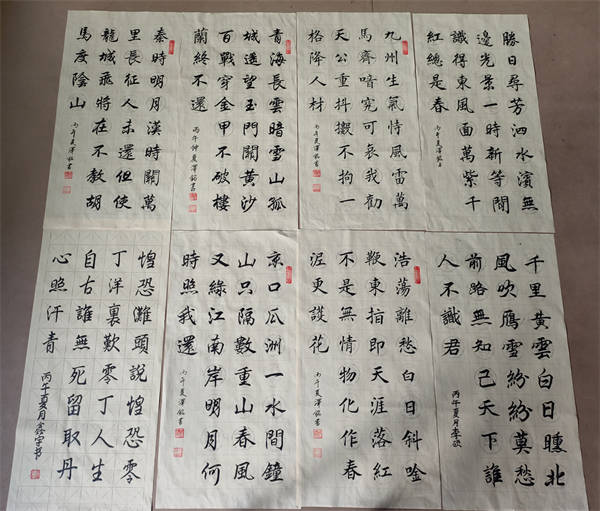 勝日尋芳泗水濱無
邊光景一時新等閒
識得東風面萬紫千
紅總是春
丙午夏澤銘書
九州生氣恃風雷萬
馬齊喑究可哀我勸
天公重抖擻不拘一
格降人材
丙午夏澤銘書
青海長雲暗雪山孤
城遙望玉門關黃沙
百戰穿金甲不破樓
蘭終不還
丙午仲夏澤銘書
秦時明月漢時關萬
里長征人未還但使
龍城飛將在不教胡
馬度陰山
丙午夏澤銘書
千里黃雲白日曛北
風吹雁雪紛紛莫愁
前路無知己天下誰
人不識君
丙午夏月李
浩蕩離愁白日斜唫
鞭東指即天涯落紅
不是無情物化作春
泥更護花
丙午夏澤銘書
京口瓜洲一水間鐘
山只隔數重山春風
又綠江南岸明月何
時照我還
丙午夏澤銘書
惶恐灘頭說惶恐零
丁洋裏歎零丁人生
自古誰無死留取丹
心照汗青
丙午夏月鑫宇书